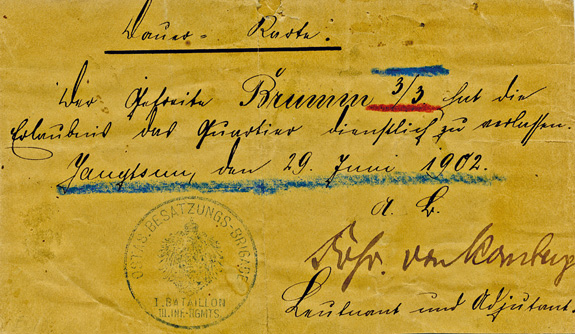 Dauer-Karte.
Der Gefreite Brumm 3/3 hat die
Erlaubnis das Quartier dienstlich zu verlassen.
Yangtsun, den 29. Juni 1902.
a. B.
OSTAS. BESATZUNGS-BRIGADE
1. BATAILLON
III. INF. RGMTS.
Frhr. von
Leutnant und Adjutant.